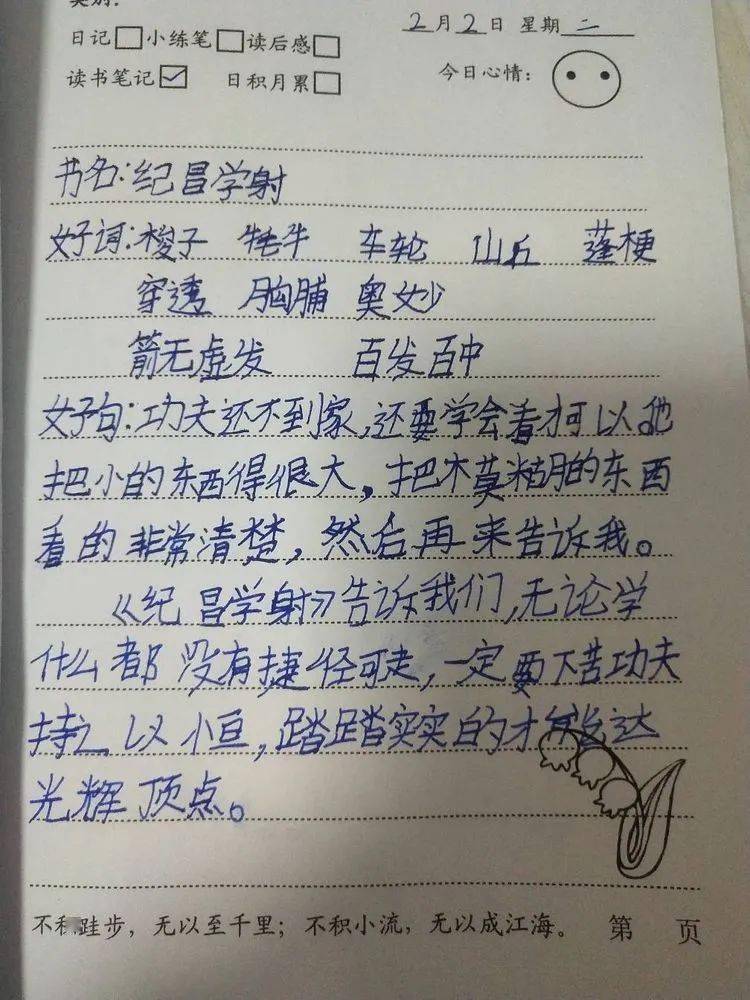 类别:
日记□ 小练笔□ 读后感□ 2月2日 星期二
读书笔记☑ 日积月累□ 今日心情:
书名:纪昌学射
好词:梭子 牦牛 车轮 山丘 蓬梗
穿透 胸脯 奥妙
箭无虚发 百发百中
好句:功夫还不到家,还要学会看才可以
把小的东西得很大,把木莫糊的东西
看的非常清楚,然后再来告诉我。
《纪昌学射》告诉我们,无论学
什么都没有捷径可走,一定要下苦功夫
持之以小亘,踏踏实实的才能达
光辉顶点。
不积跬步,无以至千里;不积小流,无以成江海。 第 页